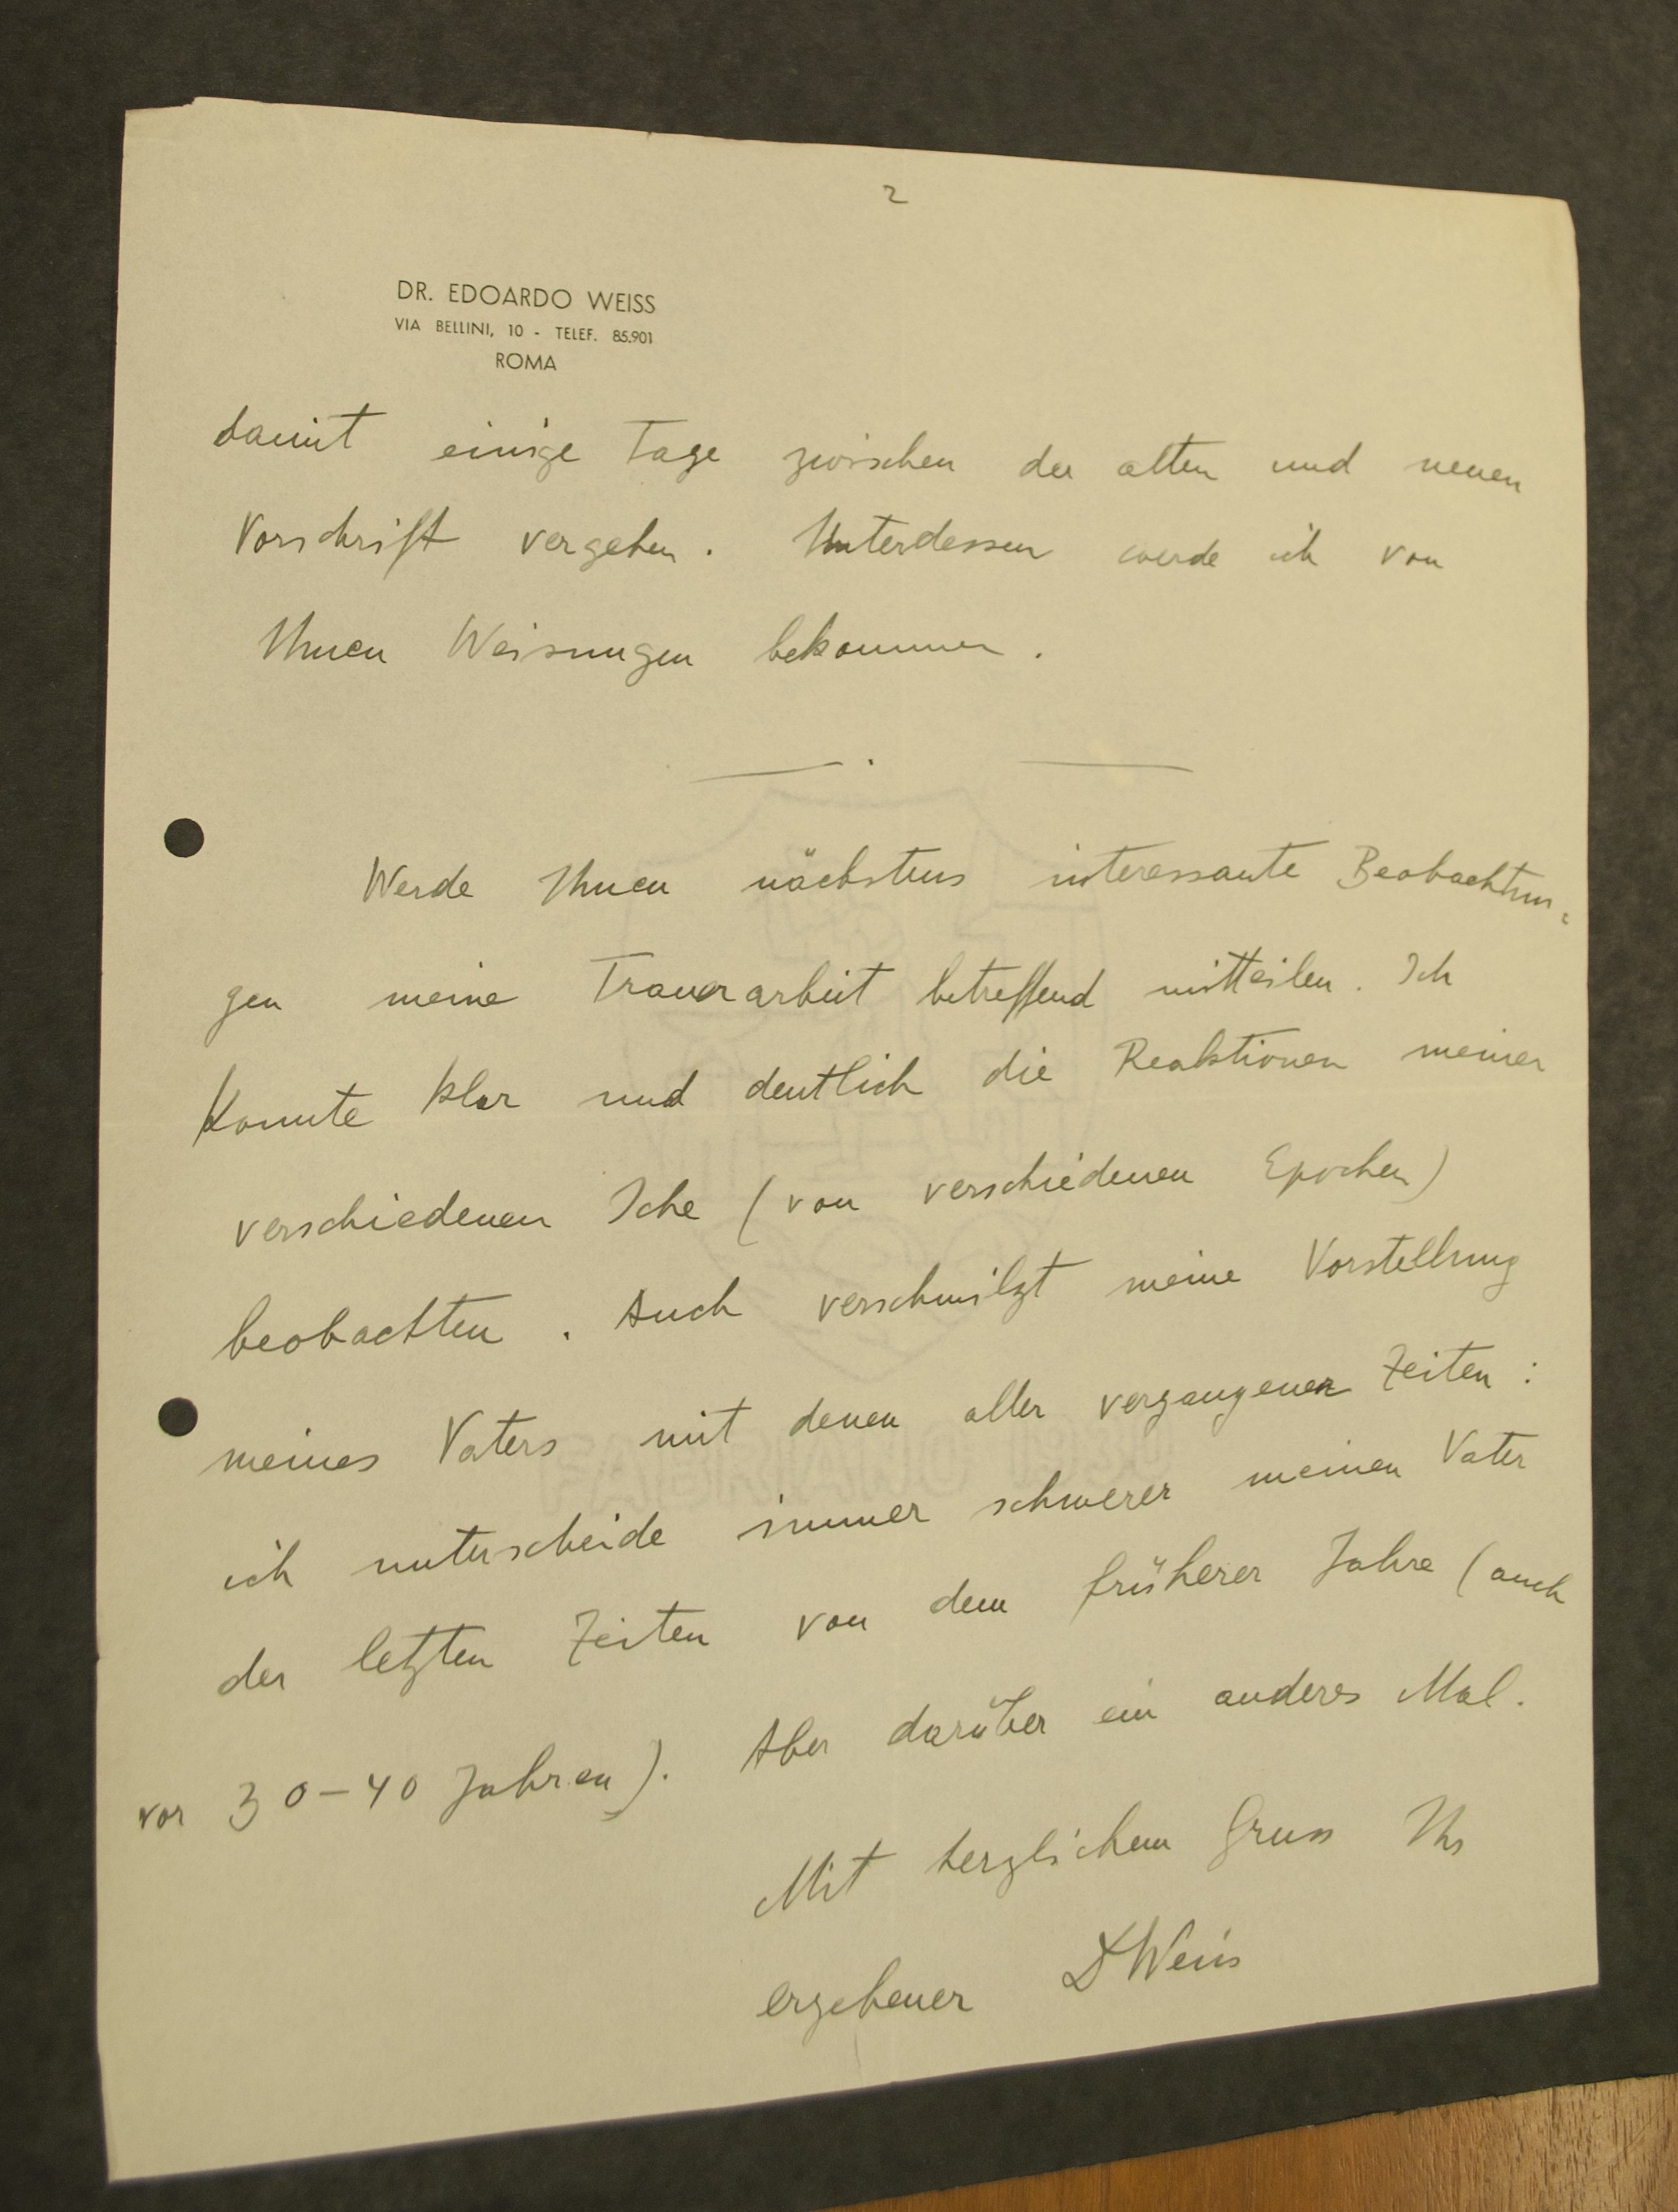 2
DR. EDOARDO WEISS
VIA BELLINI, 10 - TELEF. 85.901
ROMA
damit einige Tage zwischen der alten und neuen
Vorschrift vergehen. Unterdessen werde ich von
Ihnen Weisungen bekommen.
Werde Ihnen nächstens interessante Beobachtun-
gen meine Trauerarbeit betreffend mitteilen. Ich
konnte klar und deutlich die Reaktionen meiner
verschiedenen Iche (von verschiedenen Epochen)
beobachten. Auch verschmilzt meine Vorstellung
meines Vaters mit denen aller vergangener Zeiten:
ich unterscheide immer schwerer meinen Vater
der letzten Zeiten von dem früherer Jahre (auch
vor 30-40 Jahren). Aber darüber ein anderes Mal.
Mit herzlichem Gruss Ihr
ergebener DWeiss